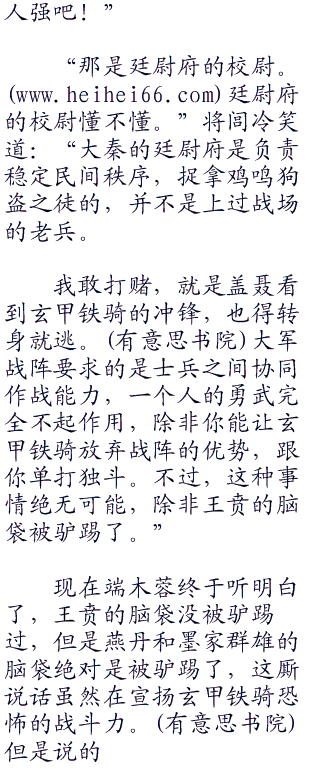 人强吧！”
“那是廷尉府的校尉。
(www.heihei66.com)廷尉府
的校尉懂不懂。”将闾冷笑
道：“大秦的廷尉府是负责
稳定民间秩序，捉拿鸡鸣狗
盗之徒的，并不是上过战场
的老兵。
我敢打赌，就是盖聂看
到玄甲铁骑的冲锋，也得转
身就逃。(有意思书院)大军
战阵要求的是士兵之间协同
作战能力，一个人的勇武完
全不起作用，除非你能让玄
甲铁骑放弃战阵的优势，跟
你单打独斗。不过，这种事
情绝无可能，除非王贲的脑
袋被驴踢了。”
现在端木蓉终于听明白
了，王贲的脑袋没被驴踢
过，但是燕丹和墨家群雄的
脑袋绝对是被驴踢了，这厮
说话虽然在宣扬玄甲铁骑恐
怖的战斗力。(有意思书院)
但是说的